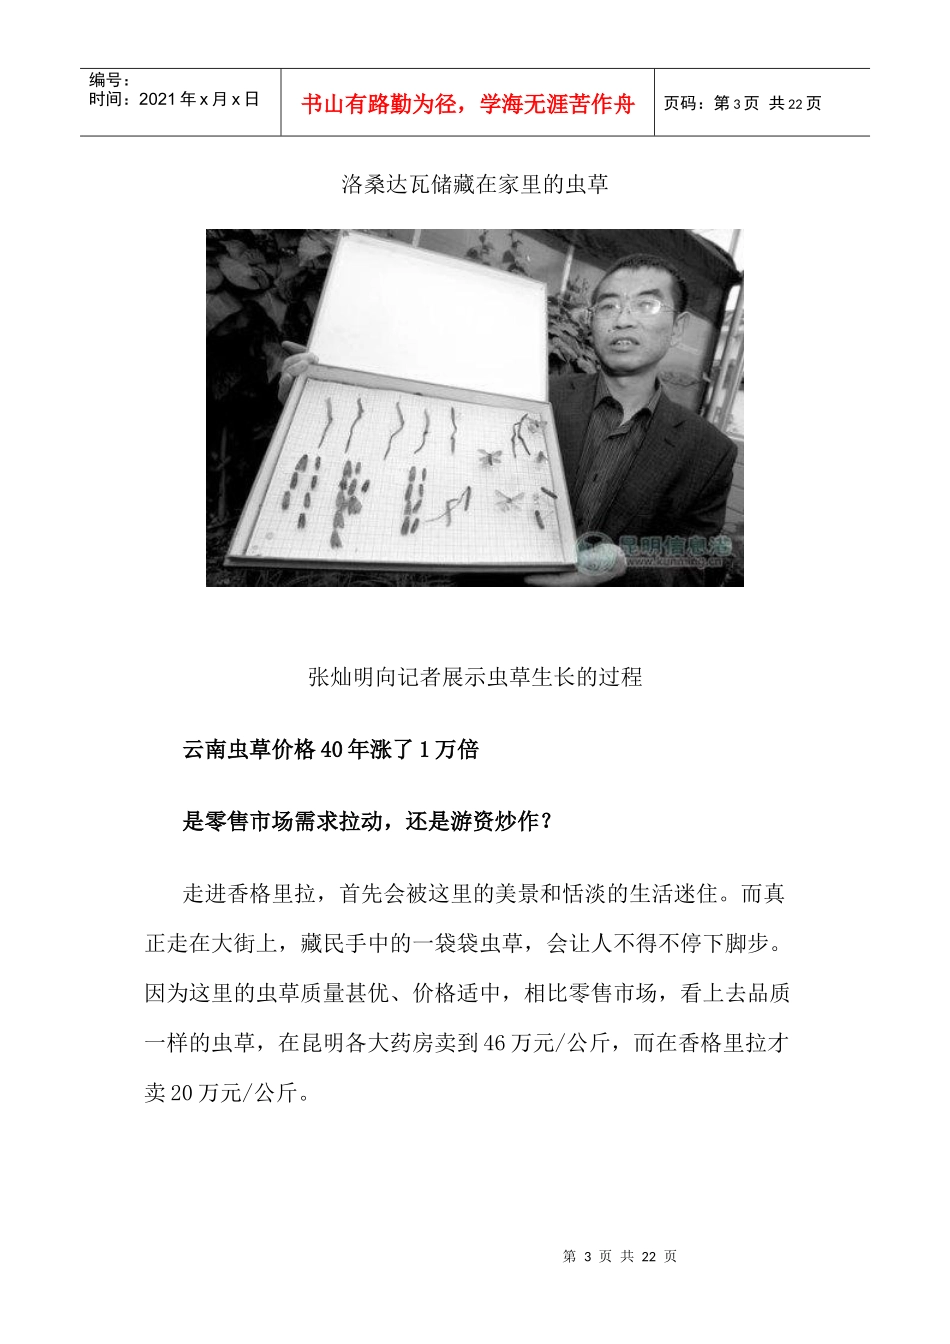 编号：
时间：2021年x月x日
书山有路勤为径，学海无涯苦作舟
页码：第3页 共22页
洛桑达瓦储藏在家里的虫草
昆明信息港
www.kunming.cn
张灿明向记者展示虫草生长的过程
云南虫草价格 40 年涨了 1 万倍
是零售市场需求拉动，还是游资炒作？
走进香格里拉，首先会被这里的美景和恬淡的生活迷住。而真
正走在大街上，藏民手中的一袋袋虫草，会让人不得不停下脚步。
因为这里的虫草质量甚优、价格适中，相比零售市场，看上去品质
一样的虫草，在昆明各大药房卖到 46 万元/公斤，而在香格里拉才
卖 20 万元/公斤。
第 3 页 共 22 页